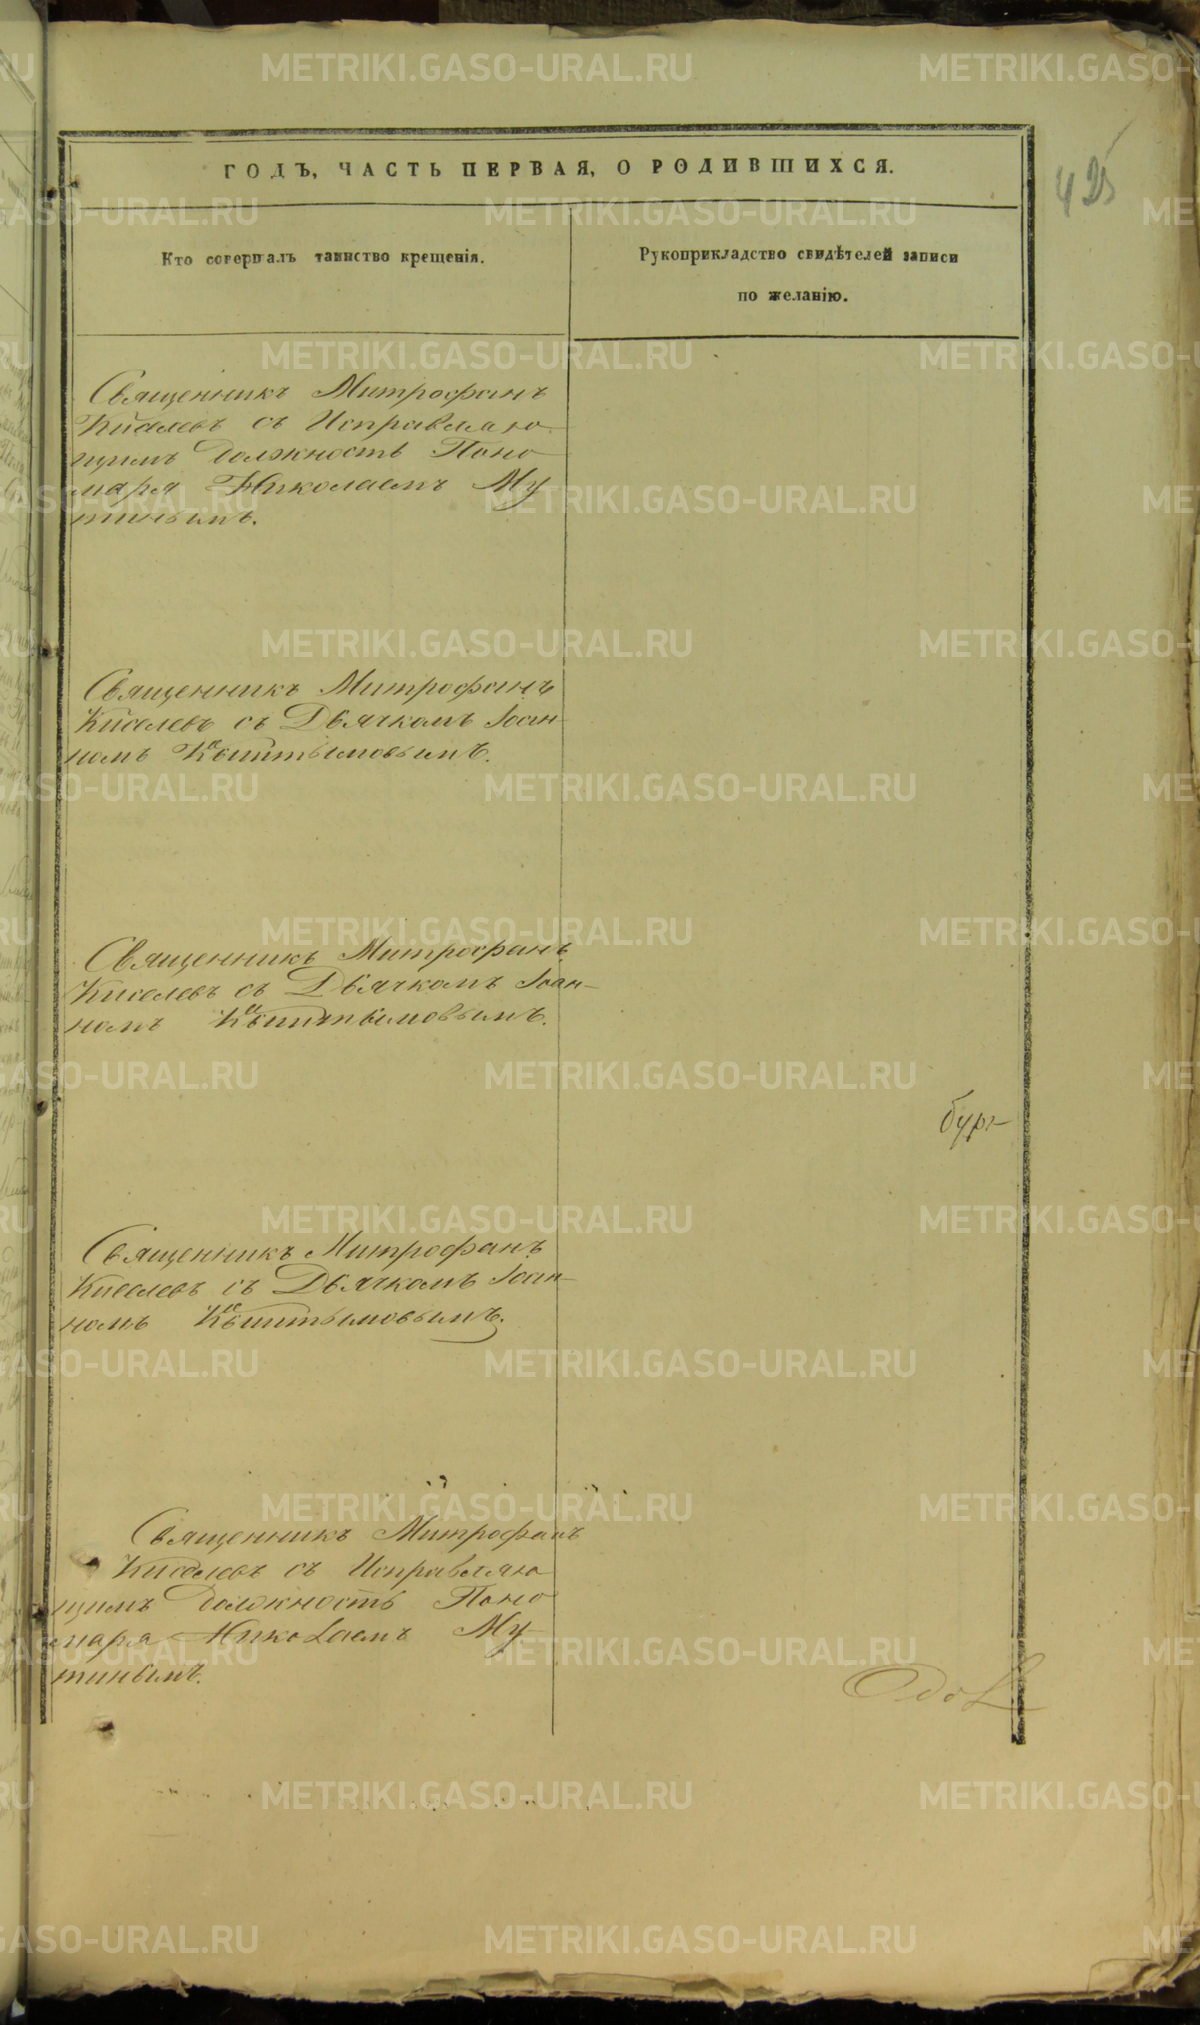 ГОДЪ, ЧАСТЬ ПЕРВАЯ, О РОДИВШИХСЯ.
425
Кто совершалъ таинство крещенія.
Рукоприкладство свидѣтелей записи
по желанію.
Священникъ Митрофанъ
Киселевъ съ Исправляю
щимъ должность Поно
маря Николаемъ Му
тинымъ.
Священникъ Митрофанъ
Киселевъ съ Дьячкомъ Іоан
номъ
Священникъ Митрофанъ
Киселевъ съ Дьячкомъ Іоан-
номъ
бург
Священникъ Митрофанъ
Киселевъ съ Дьячкомъ Іоан-
номъ
Священникъ Митрофанъ
Киселевъ съ Исправляю
щимъ должность Поно
маря Николаемъ Му
тинымъ.
METRIKI.GASO-URAL.RU